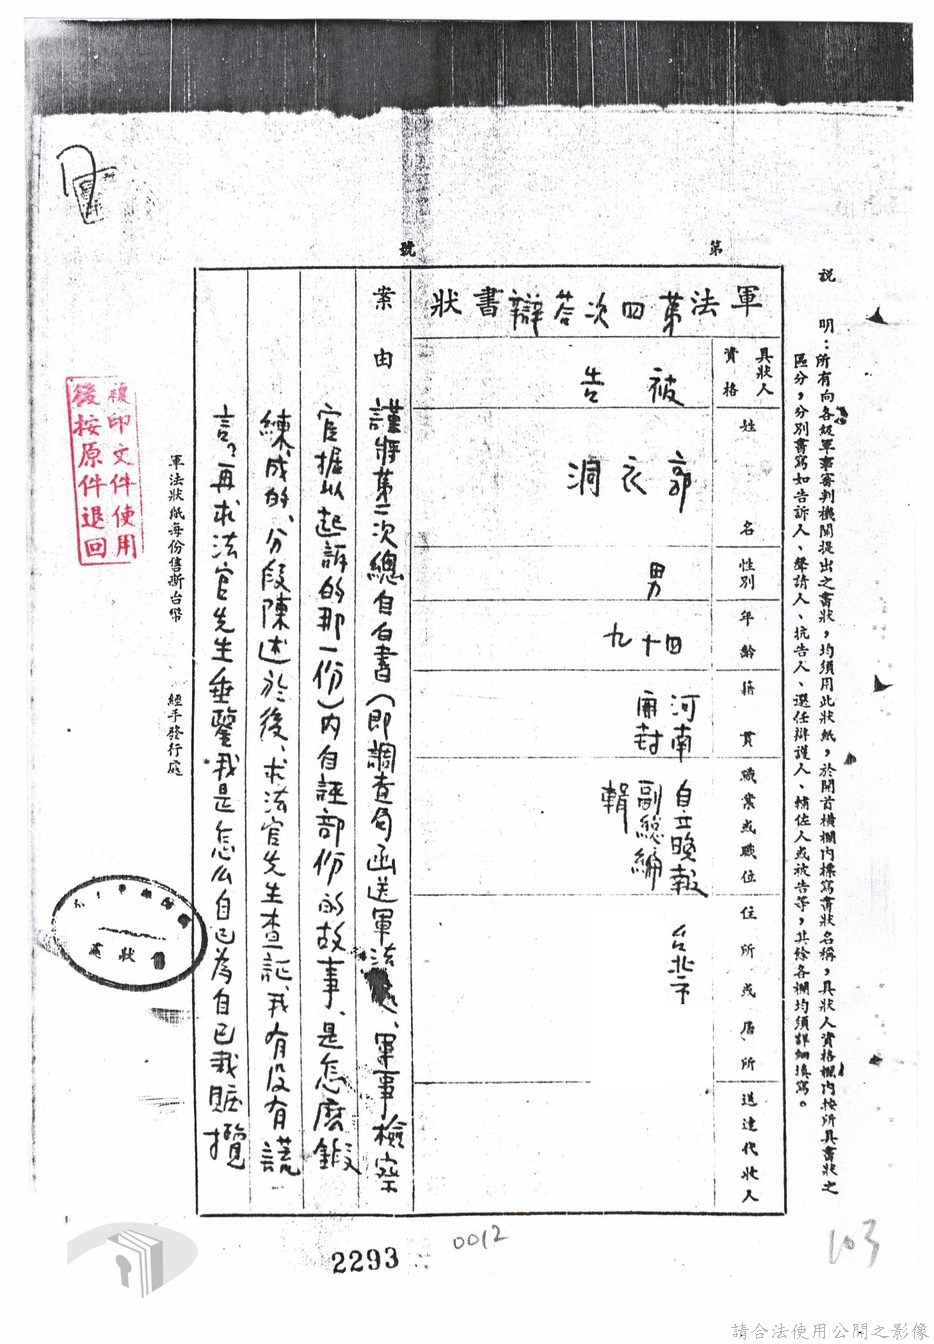 說明：所有向各級軍事審判機關提出之書狀，均須用此狀紙，於開首橫欄內標寫書狀名稱，具狀人資格欄內按所具書狀之
區分，分別書寫如告訴人、聲請人、抗告人、選任辯護人、輔佐人或被告等，其餘各欄均須詳細填寫。
第 號
軍法第四次答辯書狀
具狀人資格
被告
姓名
郭衣洞
性別
男
年齡
四十九
籍貫
河南
開封
職業或職位
自立晚報
副總編
輯
住所或居所
台北市
送達代收人
案由
謹將第二次總自白書（即調查局函送軍法處、軍事檢察
官據以起訴的那一份）內自誣部份的故事、是怎麼鍛
練成的、分段陳述於後、求法官先生查証、我有沒有謊
言。再求法官先生垂鑒我是怎么自己為自己栽賍攬
軍法狀紙每份售新台幣
經手發行處
複印文件使用
後按原件退回
狀
2293
0012
103
請合法使用公開之影像